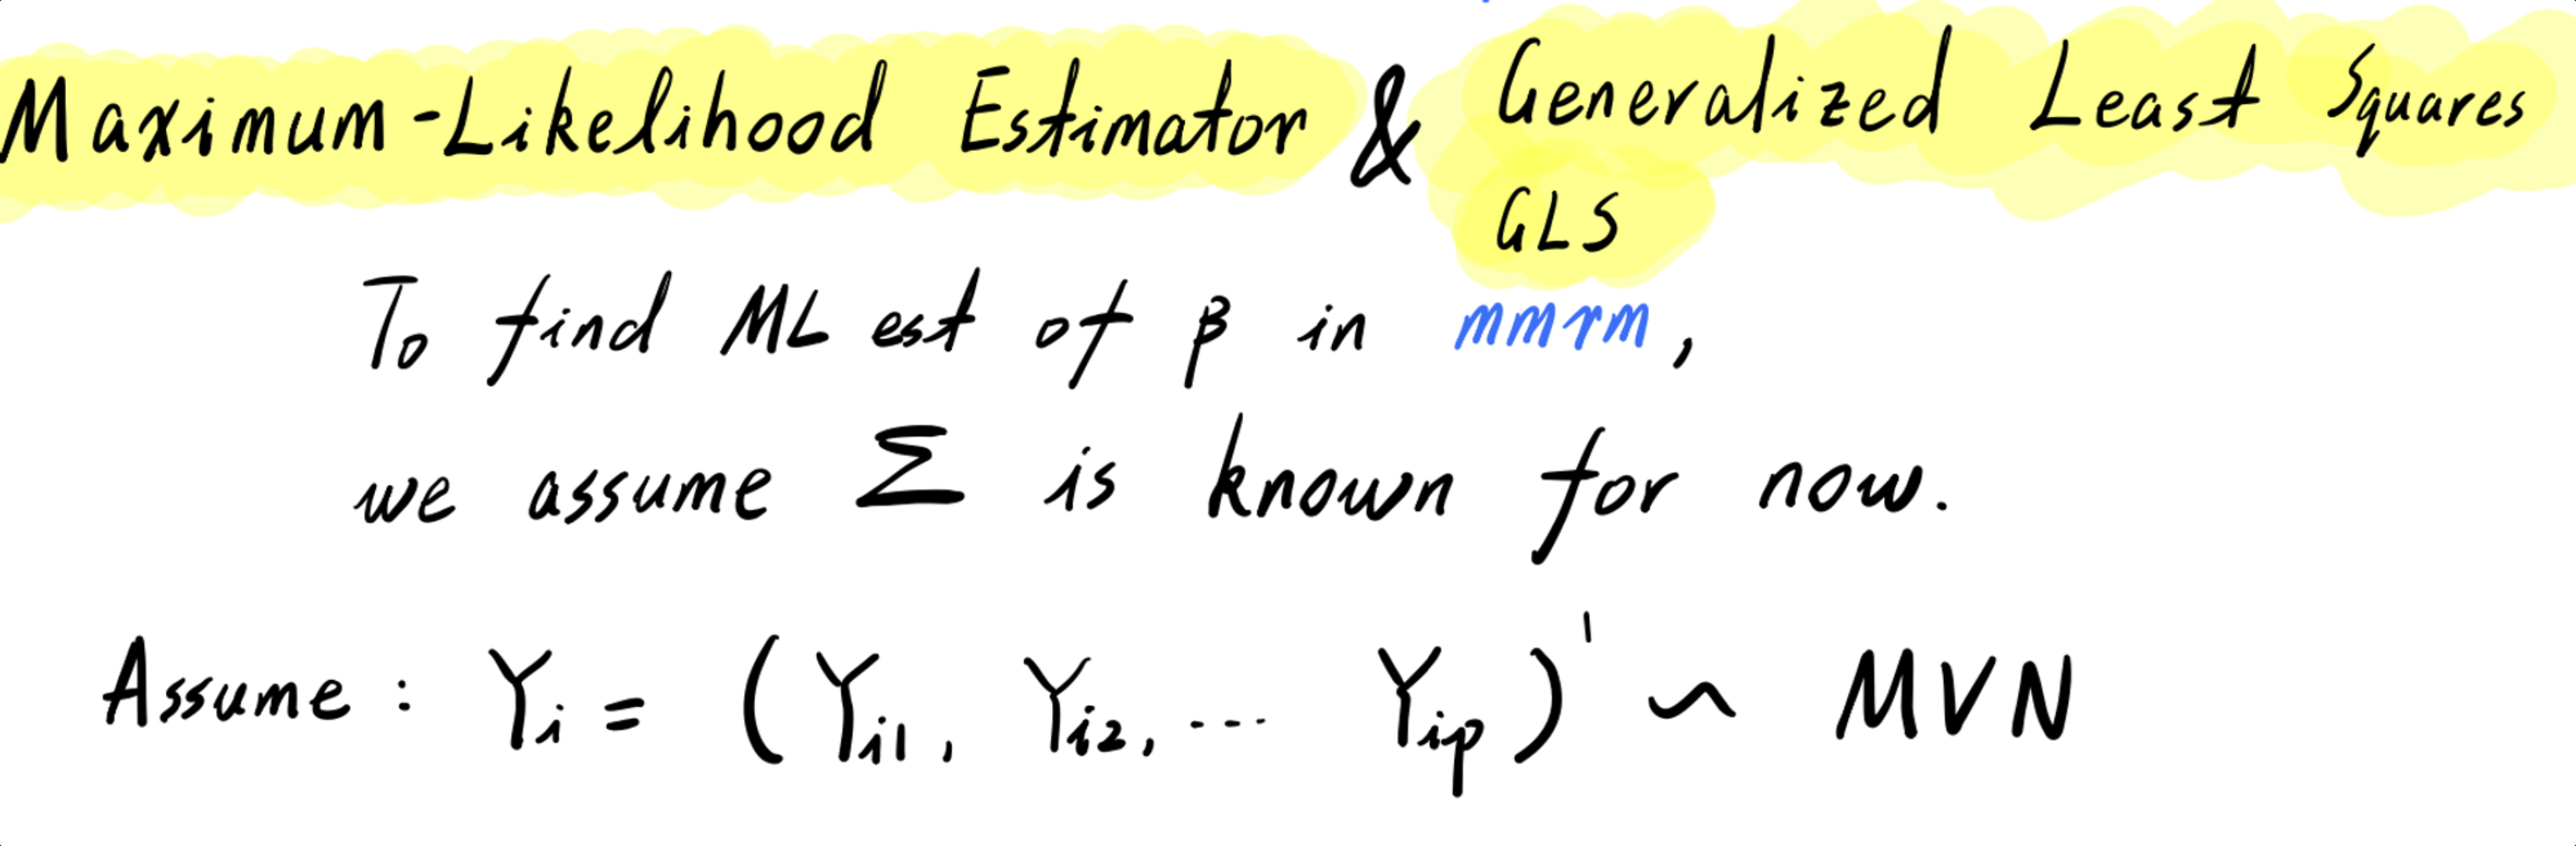 Maximum-Likelihood Estimator & Generalized Least Squares
GLS
To find ML est of β in mmrm,
we assume Σ is known for now.
Assume : Yi = (Yi1, Yi2, --- Yip)' ~ MVN